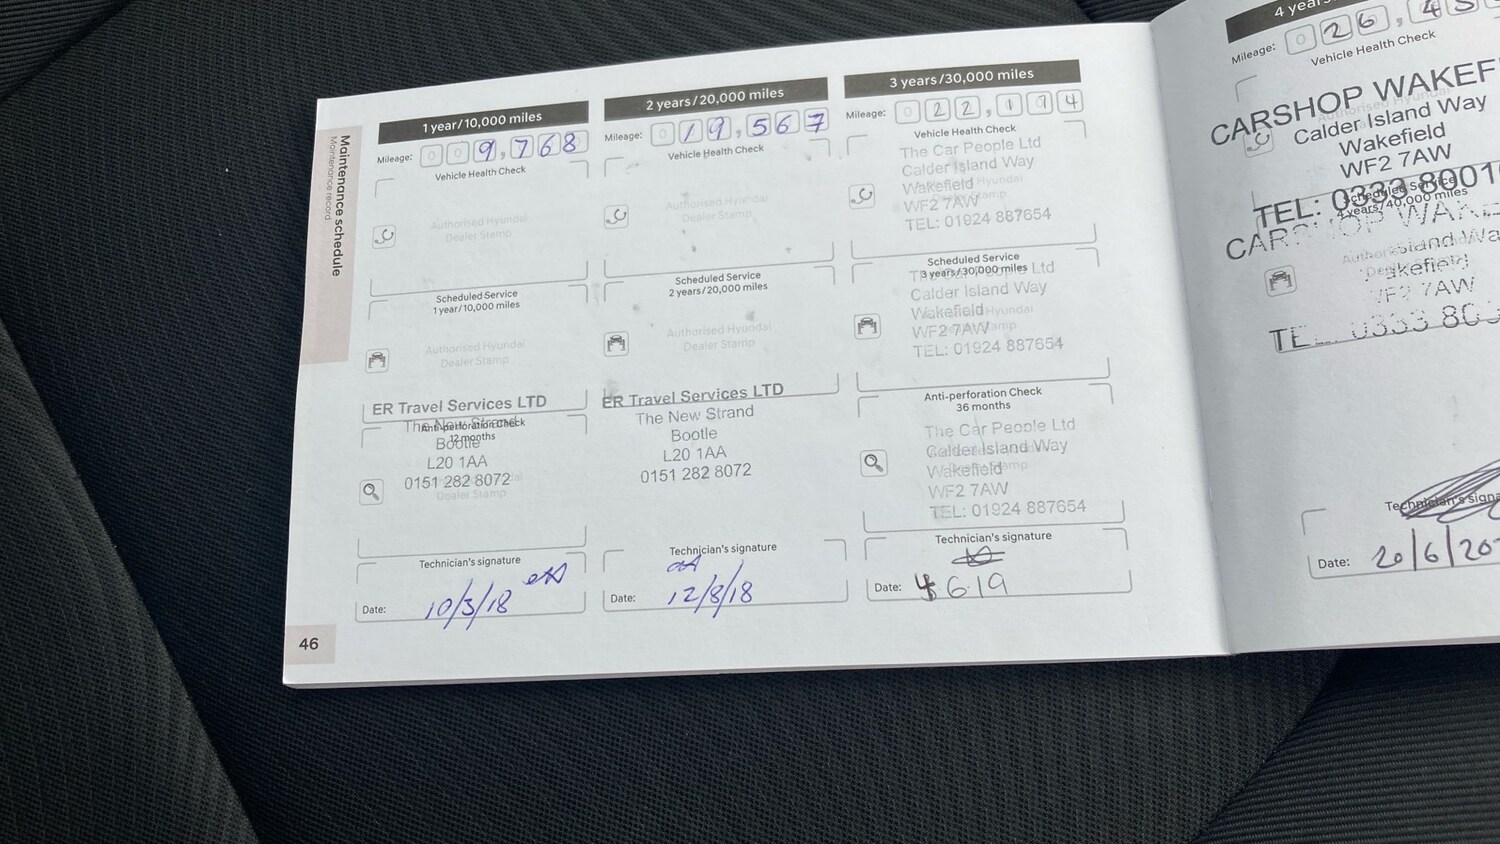 Maintenance schedule
Maintenance record
1 year/10,000 miles
Mileage: 009,768
Vehicle Health Check
Authorised Hyundai
Dealer Stamp
Scheduled Service
1 year/10,000 miles
Authorised Hyundai
Dealer Stamp
ER Travel Services LTD
The New Strand
Anti-perforation Check
12 months
Bootle
L20 1AA
0151 282 8072
Dealer Stamp
Technician's signature
Date: 10/3/18
46
2 years/20,000 miles
Mileage: 019,567
Vehicle Health Check
Authorised Hyundai
Dealer Stamp
Scheduled Service
2 years/20,000 miles
Authorised Hyundai
Dealer Stamp
ER Travel Services LTD
The New Strand
Bootle
L20 1AA
0151 282 8072
Technician's signature
Date: 12/8/18
3 years/30,000 miles
Mileage: 022,194
Vehicle Health Check
The Car People Ltd
Calder Island Way
Wakefield
WF2 7AW
TEL: 01924 887654
Scheduled Service
3 years/30,000 miles
The Car People Ltd
Calder Island Way
Wakefield
WF2 7AW
TEL: 01924 887654
Anti-perforation Check
36 months
The Car People Ltd
Calder Island Way
Wakefield
WF2 7AW
TEL: 01924 887654
Technician's signature
Date: 6.19
4
Mileage: 026,
Vehicle Health Check
CARSHOP
Calder Island Way
Wakefield
WF2 7AW
TEL: 0333
Scheduled Service
4 years/40,000 miles
CARSHOP
Island
Wakefield
WF2 7AW
0333
Technician's
Date: 20/6/20